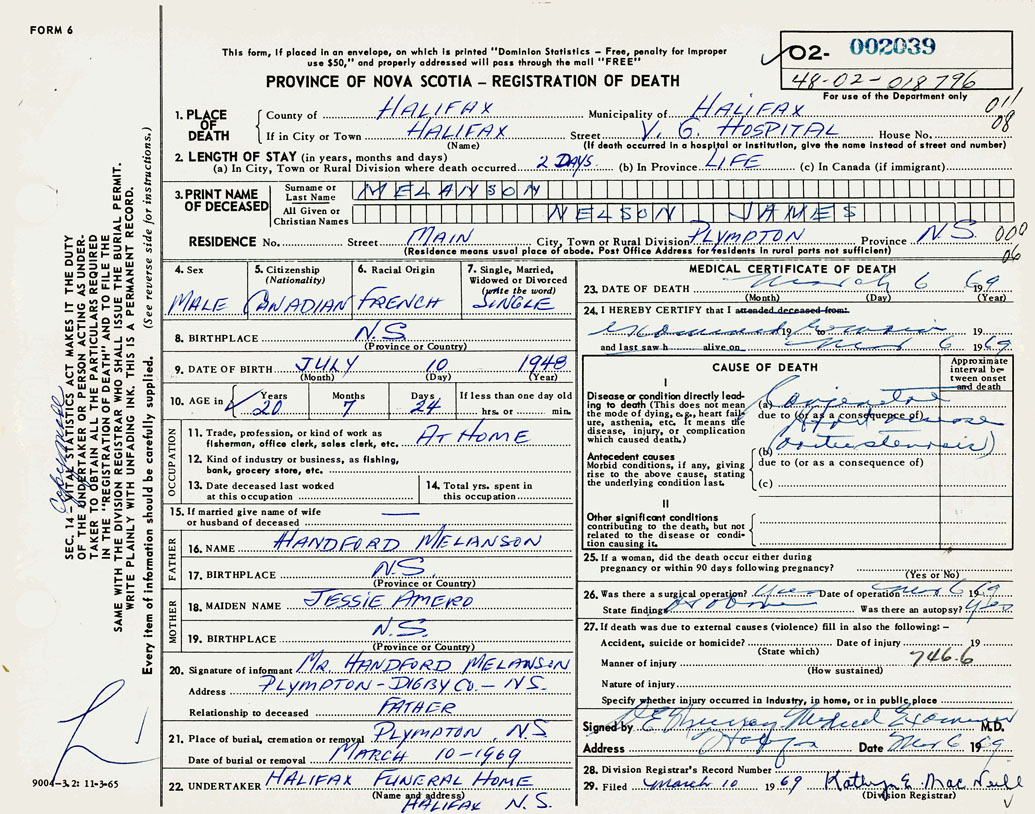 FORM 6
This form, if placed in an envelope, on which is printed "Dominion Statistics – Free, penalty for improper
use $50," and properly addressed will pass through the mail "FREE"
PROVINCE OF NOVA SCOTIA – REGISTRATION OF DEATH
02- 002039
48-02-018796
For use of the Department only
011
08
1. PLACE OF DEATH
County of HALIFAX Municipality of HALIFAX
If in City or Town HALIFAX Street V. G. HOSPITAL House No.
(Name) (If death occurred in a hospital or institution, give the name instead of street and number)
2. LENGTH OF STAY (in years, months and days)
(a) In City, Town or Rural Division where death occurred 2 DAYS (b) In Province LIFE (c) In Canada (if immigrant)
3. PRINT NAME OF DECEASED
Surname or Last Name MELANSON
All Given or Christian Names NELSON JAMES
RESIDENCE No. Street MAIN City, Town or Rural Division PLYMPTON Province N.S. 000
06
(Residence means usual place of abode. Post Office Address for residents in rural parts not sufficient)
4. Sex MALE
5. Citizenship (Nationality) CANADIAN
6. Racial Origin FRENCH
7. Single, Married, Widowed or Divorced (write the word) SINGLE
8. BIRTHPLACE N.S.
(Province or Country)
9. DATE OF BIRTH JULY 10 1948
(Month) (Day) (Year)
10. AGE in Years 20 Months 7 Days 24 If less than one day old
hrs. or min.
OCCUPATION
11. Trade, profession, or kind of work as
fisherman, office clerk, sales clerk, etc. AT HOME
12. Kind of industry or business, as fishing,
bank, grocery store, etc.
13. Date deceased last worked
at this occupation
14. Total yrs. spent in
this occupation
15. If married give name of wife
or husband of deceased —
FATHER
16. NAME HANDFORD MELANSON
17. BIRTHPLACE N.S.
(Province or Country)
MOTHER
18. MAIDEN NAME JESSIE AMERO
19. BIRTHPLACE N.S.
(Province or Country)
20. Signature of informant MR. HANDFORD MELANSON
Address PLYMPTON-DIGBY CO.-N.S.
Relationship to deceased FATHER
21. Place of burial, cremation or removal PLYMPTON, N.S
Date of burial or removal MARCH 10-1969
22. UNDERTAKER HALIFAX FUNERAL HOME
(Name and address)
HALIFAX N.S.
MEDICAL CERTIFICATE OF DEATH
23. DATE OF DEATH March 6 1969
(Month) (Day) (Year)
24. I HEREBY CERTIFY that I attended deceased from:
19 to 19
and last saw h alive on Mar 6 1969
CAUSE OF DEATH
Approximate interval between onset and death
I
Disease or condition directly leading
to death (This does not mean
the mode of dying, e.g., heart failure,
asthenia, etc. It means the
disease, injury, or complication
which caused death.)
(a) Congenital
due to (or as a consequence of)
Heart Disease
Antecedent causes
Morbid conditions, if any, giving
rise to the above cause, stating
the underlying condition last.
(b)
due to (or as a consequence of)
(c)
II
Other significant conditions
contributing to the death, but not
related to the disease or condition
causing it.
25. If a woman, did the death occur either during
pregnancy or within 90 days following pregnancy?
(Yes or No)
26. Was there a surgical operation? Yes Date of operation Mar 6 1969
State findings as above Was there an autopsy? Yes
27. If death was due to external causes (violence) fill in also the following: –
Accident, suicide or homicide? Date of injury 19
(State which)
Manner of injury 746.6
(How sustained)
Nature of injury
Specify whether injury occurred in industry, in home, or in public place
Signed by Medical Examiner M.D.
Address Date Mar 6 1969
28. Division Registrar's Record Number
29. Filed March 10 1969 Kathryn E. MacNeill
(Division Registrar)
SEC. 14 – VITAL STATISTICS ACT MAKES IT THE DUTY
OF THE UNDERTAKER OR PERSON ACTING AS UNDERTAKER
TO OBTAIN ALL THE PARTICULARS REQUIRED
IN THE "REGISTRATION OF DEATH" AND TO FILE THE
SAME WITH THE DIVISION REGISTRAR WHO SHALL ISSUE THE BURIAL PERMIT.
WRITE PLAINLY WITH UNFADING INK. THIS IS A PERMANENT RECORD.
Every item of information should be carefully supplied. (See reverse side for instructions.)
9004-3.2: 11-3-65